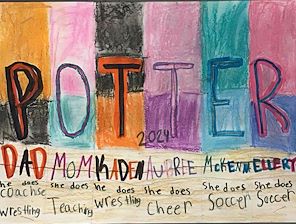 POTTER
2024
DAD MOM KADEN AUBREE MCKENNA ELLERY
he does she does he does She does She does She does
coachse Teaching wrestling Cheer Soccer Soccer
wrestling